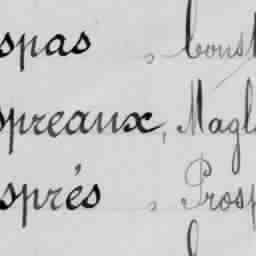 spas, Const
spreaux, Magl
sprés, Prosp